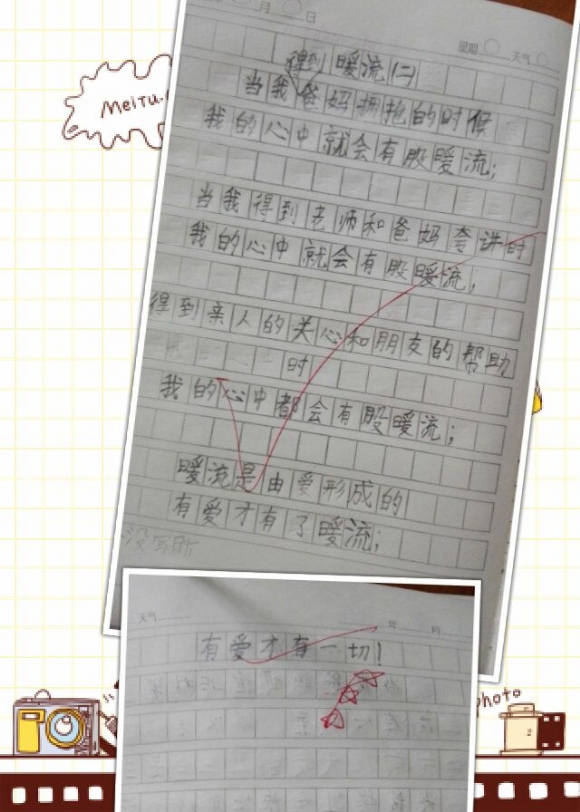 月 日
星期 天气
暖流(二)
得到
当我爸妈拥抱的时候
我的心中就会有股暖流;
当我得到老师和爸妈夸讲时
我的心中就会有股暖流;
得到亲人的关心和朋友的帮助
时
我的心中都会有股暖流;
暖流是由爱形成的
有爱才有了暖流;
天气
年 月
有爱才有一切!
MeiTu.
photo